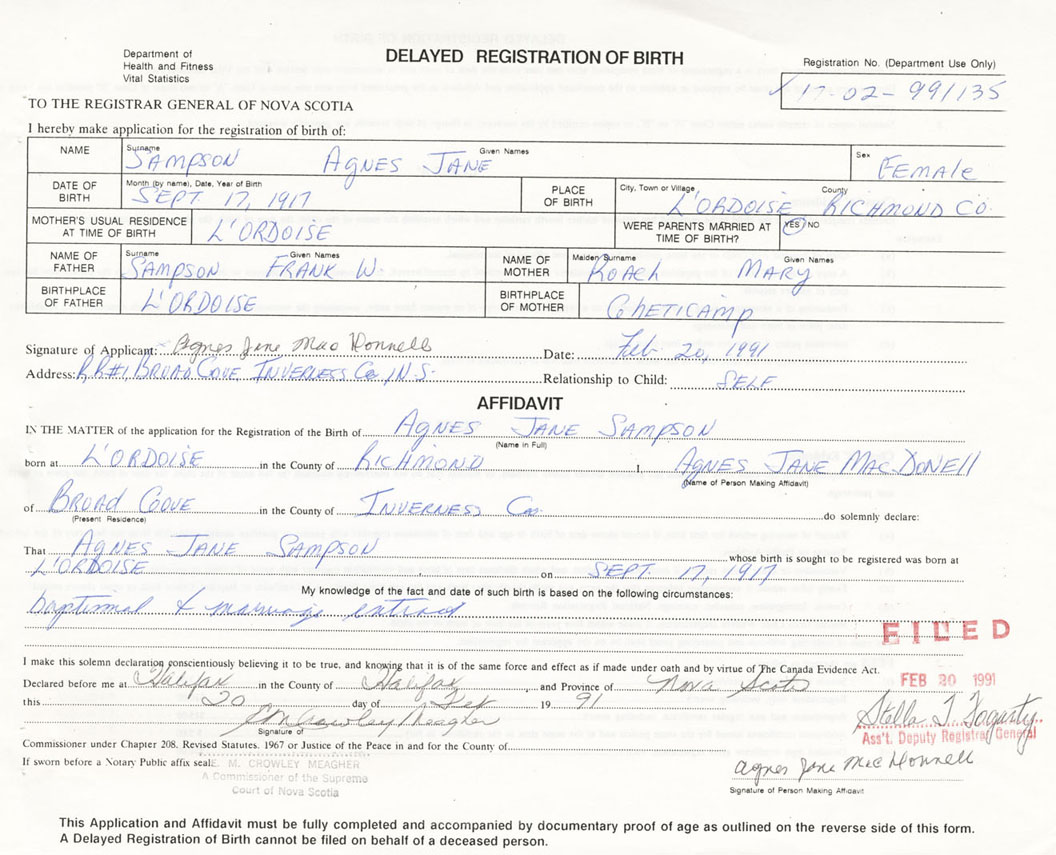 Department of
Health and Fitness
Vital Statistics
DELAYED REGISTRATION OF BIRTH
Registration No. (Department Use Only)
17-02-991135
TO THE REGISTRAR GENERAL OF NOVA SCOTIA
I hereby make application for the registration of birth of:
NAME Surname Given Names Sex
SAMPSON AGNES JANE FEMALE
DATE OF BIRTH Month (by name), Date, Year of Birth PLACE OF BIRTH City, Town or Village County
SEPT. 17, 1917 L'ORDOISE RICHMOND CO.
MOTHER'S USUAL RESIDENCE AT TIME OF BIRTH L'ORDOISE WERE PARENTS MARRIED AT TIME OF BIRTH? YES/NO
NAME OF FATHER Surname Given Names NAME OF MOTHER Maiden Surname Given Names
SAMPSON FRANK W. ROACH MARY
BIRTHPLACE OF FATHER L'ORDOISE BIRTHPLACE OF MOTHER CHETICAMP
Signature of Applicant: Agnes Jane Mac Donnell Date: Feb 20, 1991
Address: R.R#1, BROAD COVE INVERNESS Co., N.S. Relationship to Child: SELF
AFFIDAVIT
IN THE MATTER of the application for the Registration of the Birth of AGNES JANE SAMPSON
(Name in Full)
born at L'ORDOISE in the County of RICHMOND I, AGNES JANE MACDONELL
(Name of Person Making Affidavit)
of BROAD COVE in the County of INVERNESS Co. do solemnly declare:
(Present Residence)
That AGNES JANE SAMPSON whose birth is sought to be registered was born at
L'ORDOISE on SEPT. 17, 1917
My knowledge of the fact and date of such birth is based on the following circumstances:
baptismal & marriage extract
FILED
I make this solemn declaration conscientiously believing it to be true, and knowing that it is of the same force and effect as if made under oath and by virtue of The Canada Evidence Act.
FEB 20 1991
Declared before me at Halifax in the County of Halifax, and Province of Nova Scotia
this 20 day of Feb 1991
EM Crowley Meagher
Signature of
Stella T Fogarty
Ass't. Deputy Registrar General
Commissioner under Chapter 208. Revised Statutes. 1967 or Justice of the Peace in and for the County of
If sworn before a Notary Public affix seal.
E. M. CROWLEY MEAGHER
A Commissioner of the Supreme
Court of Nova Scotia
Agnes Jane Mac Donnell
Signature of Person Making Affidavit
This Application and Affidavit must be fully completed and accompanied by documentary proof of age as outlined on the reverse side of this form.
A Delayed Registration of Birth cannot be filed on behalf of a deceased person.